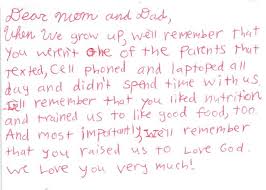 Dear mom and Dad,
When We grow up, we'll remember that
you weren't one of the parents that
texted, Cell phoned and laptoped all
day and didn't spend time with us.
We'll remember that you liked nutrition
and trained us to like good food, too.
And most importantly, we'll remember
that you raised us to Love God.
We Love you very much!